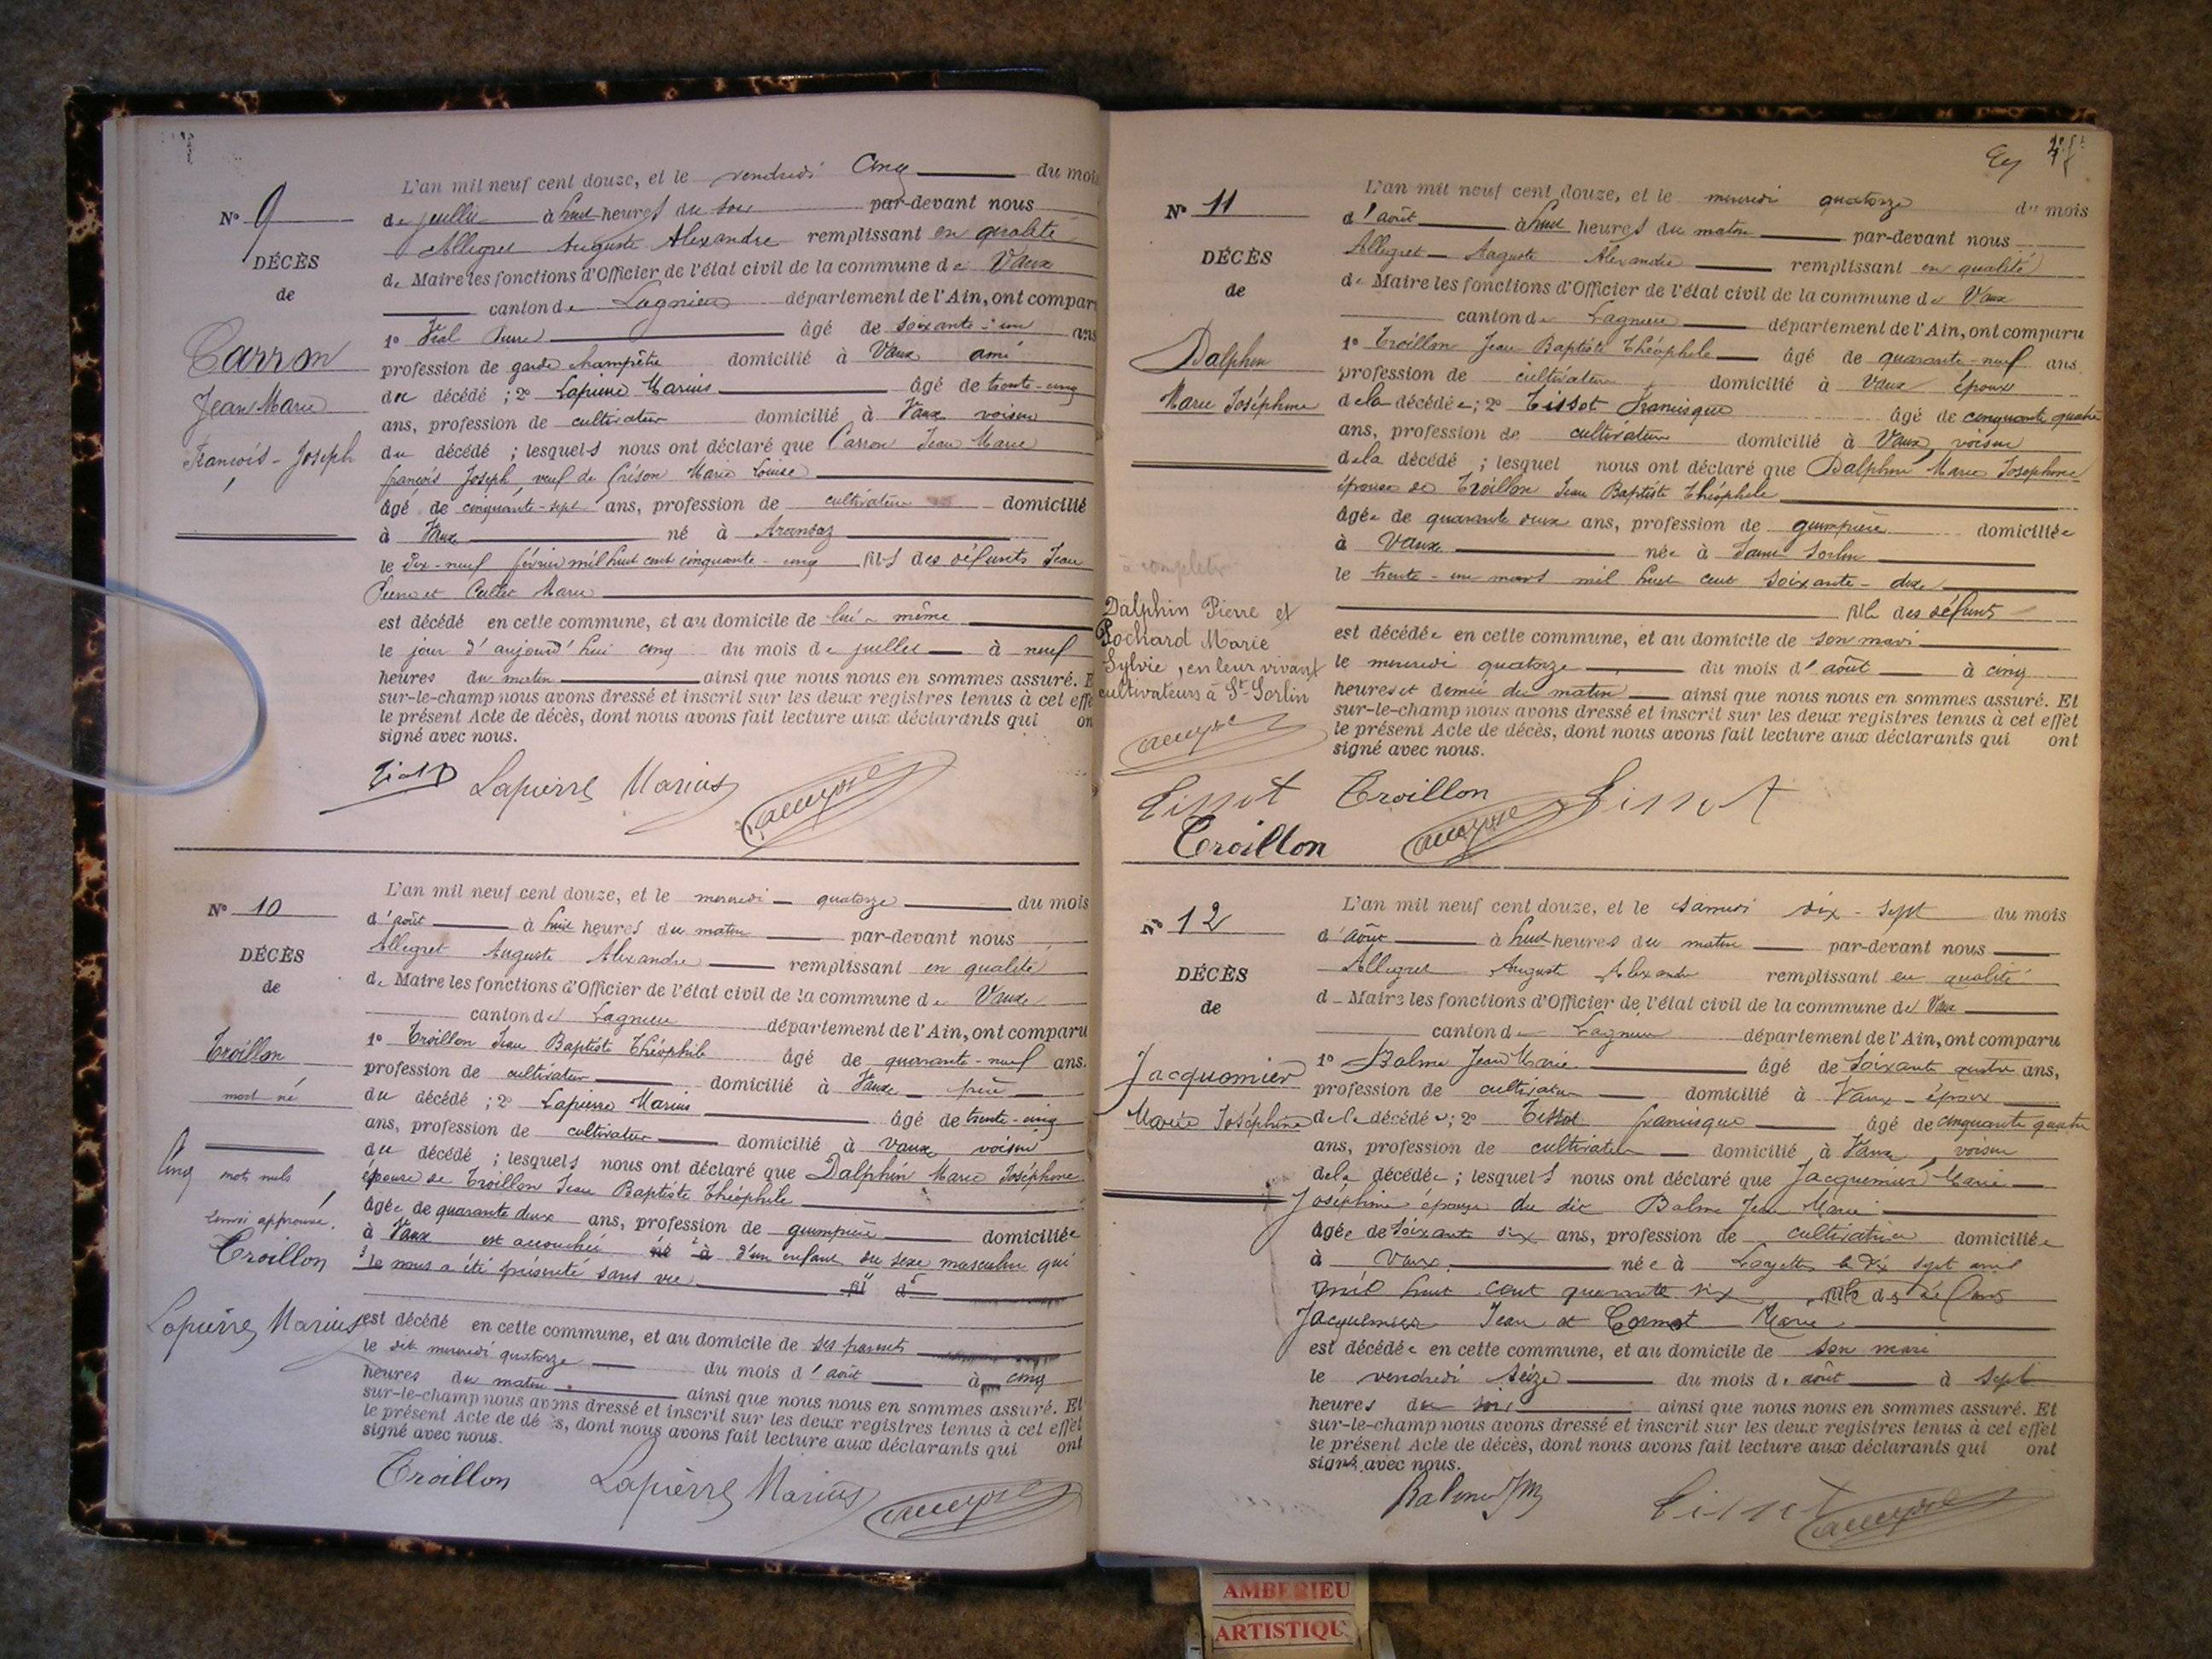 L'an mil neuf cent douze, et le vendredi Cinq du mois
N° 9
de juillet à huit heures du soir par-devant nous
Allegret Auguste Alexandre remplissant en qualité
DÉCÈS
de Maire les fonctions d'Officier de l'état civil de la commune de Vaux
de
canton de Lagnieu département de l'Ain, ont comparu
1° Vial Pierre âgé de soixante-un ans
Carron
profession de garde champêtre domicilié à Vaux ami
Jean Marie
du décédé ; 2° Lapierre Marius âgé de trente-cinq
ans, profession de cultivateur domicilié à Vaux voisin
François-Joseph
du décédé ; lesquels nous ont déclaré que Carron Jean Marie
françois Joseph, veuf de Créson Marie Louise
âgé de cinquante-sept ans, profession de cultivateur domicilié
à Vaux né à Arandaz
le dix-neuf février mil huit cent cinquante-cinq fils des défunts Jean
Pierre et Cullet Marie
est décédé en cette commune, et au domicile de lui-même
le jour d'aujourd'hui cinq du mois de juillet à neuf
heures du matin ainsi que nous nous en sommes assuré. E
sur-le-champ nous avons dressé et inscrit sur les deux registres tenus à cet effe
le présent Acte de décès, dont nous avons fait lecture aux déclarants qui on
signé avec nous.
Vial P Lapierre Marius
L'an mil neuf cent douze, et le mercredi quatorze du mois
N° 10
d'août à huit heures du matin par-devant nous
Allegret Auguste Alexandre remplissant en qualité
DÉCÈS
de Maire les fonctions d'Officier de l'état civil de la commune de Vaux
de
canton de Lagnieu département de l'Ain, ont comparu
1° Troillon Jean Baptiste Théophile âgé de quarante-neuf ans.
Troillon
profession de cultivateur domicilié à Vaux père
mort né
du décédé ; 2° Lapierre Marius âgé de trente-cinq
ans, profession de cultivateur domicilié à Vaux voisin
du décédé ; lesquels nous ont déclaré que Dalphin Marie Joséphine
Cinq mots nuls
épouse de Troillon Jean Baptiste Théophile
âgée de quarante deux ans, profession de guimpière domiciliée
renvoi approuvé.
à Vaux est accouchée né à d'un enfant du sexe masculin qui
Troillon
le nous a été présenté sans vie fil d
Lapierre Marius
est décédé en cette commune, et au domicile de ses parents
le dit mercredi quatorze du mois d'août à cinq
heures du matin ainsi que nous nous en sommes assuré. Et
sur-le-champ nous avons dressé et inscrit sur les deux registres tenus à cet effet
le présent Acte de décès, dont nous avons fait lecture aux déclarants qui ont
signé avec nous.
Troillon Lapierre Marius
L'an mil neuf cent douze, et le mercredi quatorze du mois
N° 11
d'août à huit heures du matin par-devant nous
Allegret Auguste Alexandre remplissant en qualité
DÉCÈS
de Maire les fonctions d'Officier de l'état civil de la commune de Vaux
de
canton de Lagnieu département de l'Ain, ont comparu
1° Troillon Jean Baptiste Théophile âgé de quarante-neuf ans
Dalphin
profession de cultivateur domicilié à Vaux époux
Marie Joséphine
de la décédée ; 2° Tissot Francisque âgé de cinquante quatre
ans, profession de cultivateur domicilié à Vaux, voisin
de la décédé ; lesquel nous ont déclaré que Dalphin Marie Josephine
épouse de Troillon Jean Baptiste Théophile
âgée de quarante deux ans, profession de guimpière domiciliée
à Vaux née à Saint Sorlin
le trente-un mars mil huit cent soixante-dix
à compléter
fille des défunts
Dalphin Pierre et
Pochard Marie
Sylvie, en leur vivant
cultivateurs à St Sorlin
est décédée en cette commune, et au domicile de son mari
le mercredi quatorze du mois d'août à cinq
heures et demie du matin ainsi que nous nous en sommes assuré. Et
sur-le-champ nous avons dressé et inscrit sur les deux registres tenus à cet effet
le présent Acte de décès, dont nous avons fait lecture aux déclarants qui ont
signé avec nous.
Tissot Troillon Tissot
Troillon
L'an mil neuf cent douze, et le samedi dix-sept du mois
N° 12
d'août à huit heures du matin par-devant nous
Allegret Auguste Alexandre remplissant en qualité
DÉCÈS
de Maire les fonctions d'Officier de l'état civil de la commune de Vaux
de
canton de Lagnieu département de l'Ain, ont comparu
1° Balme Jean Marie âgé de soixante quatre ans,
Jacquemier
profession de cultivateur domicilié à Vaux époux
Marie Joséphine
de la décédée ; 2° Tissot francisque âgé de cinquante quatre
ans, profession de cultivateur domicilié à Vaux, voisin
de la décédée ; lesquels nous ont déclaré que Jacquemier Marie
Joséphine épouse du dit Balme Jean Marie
âgée de soixante six ans, profession de cultivatrice domiciliée
à Vaux née à Loyettes le dix sept avril
mil huit cent quarante six, fille des défunts
Jacquemier Jean et Cormot Marie
est décédée en cette commune, et au domicile de son mari
le vendredi seize du mois de août à sept
heures du soir ainsi que nous nous en sommes assuré. Et
sur-le-champ nous avons dressé et inscrit sur les deux registres tenus à cet effet
le présent Acte de décès, dont nous avons fait lecture aux déclarants qui ont
signé avec nous.
Balme JM Tissot
AMBERIEU
ARTISTIQU